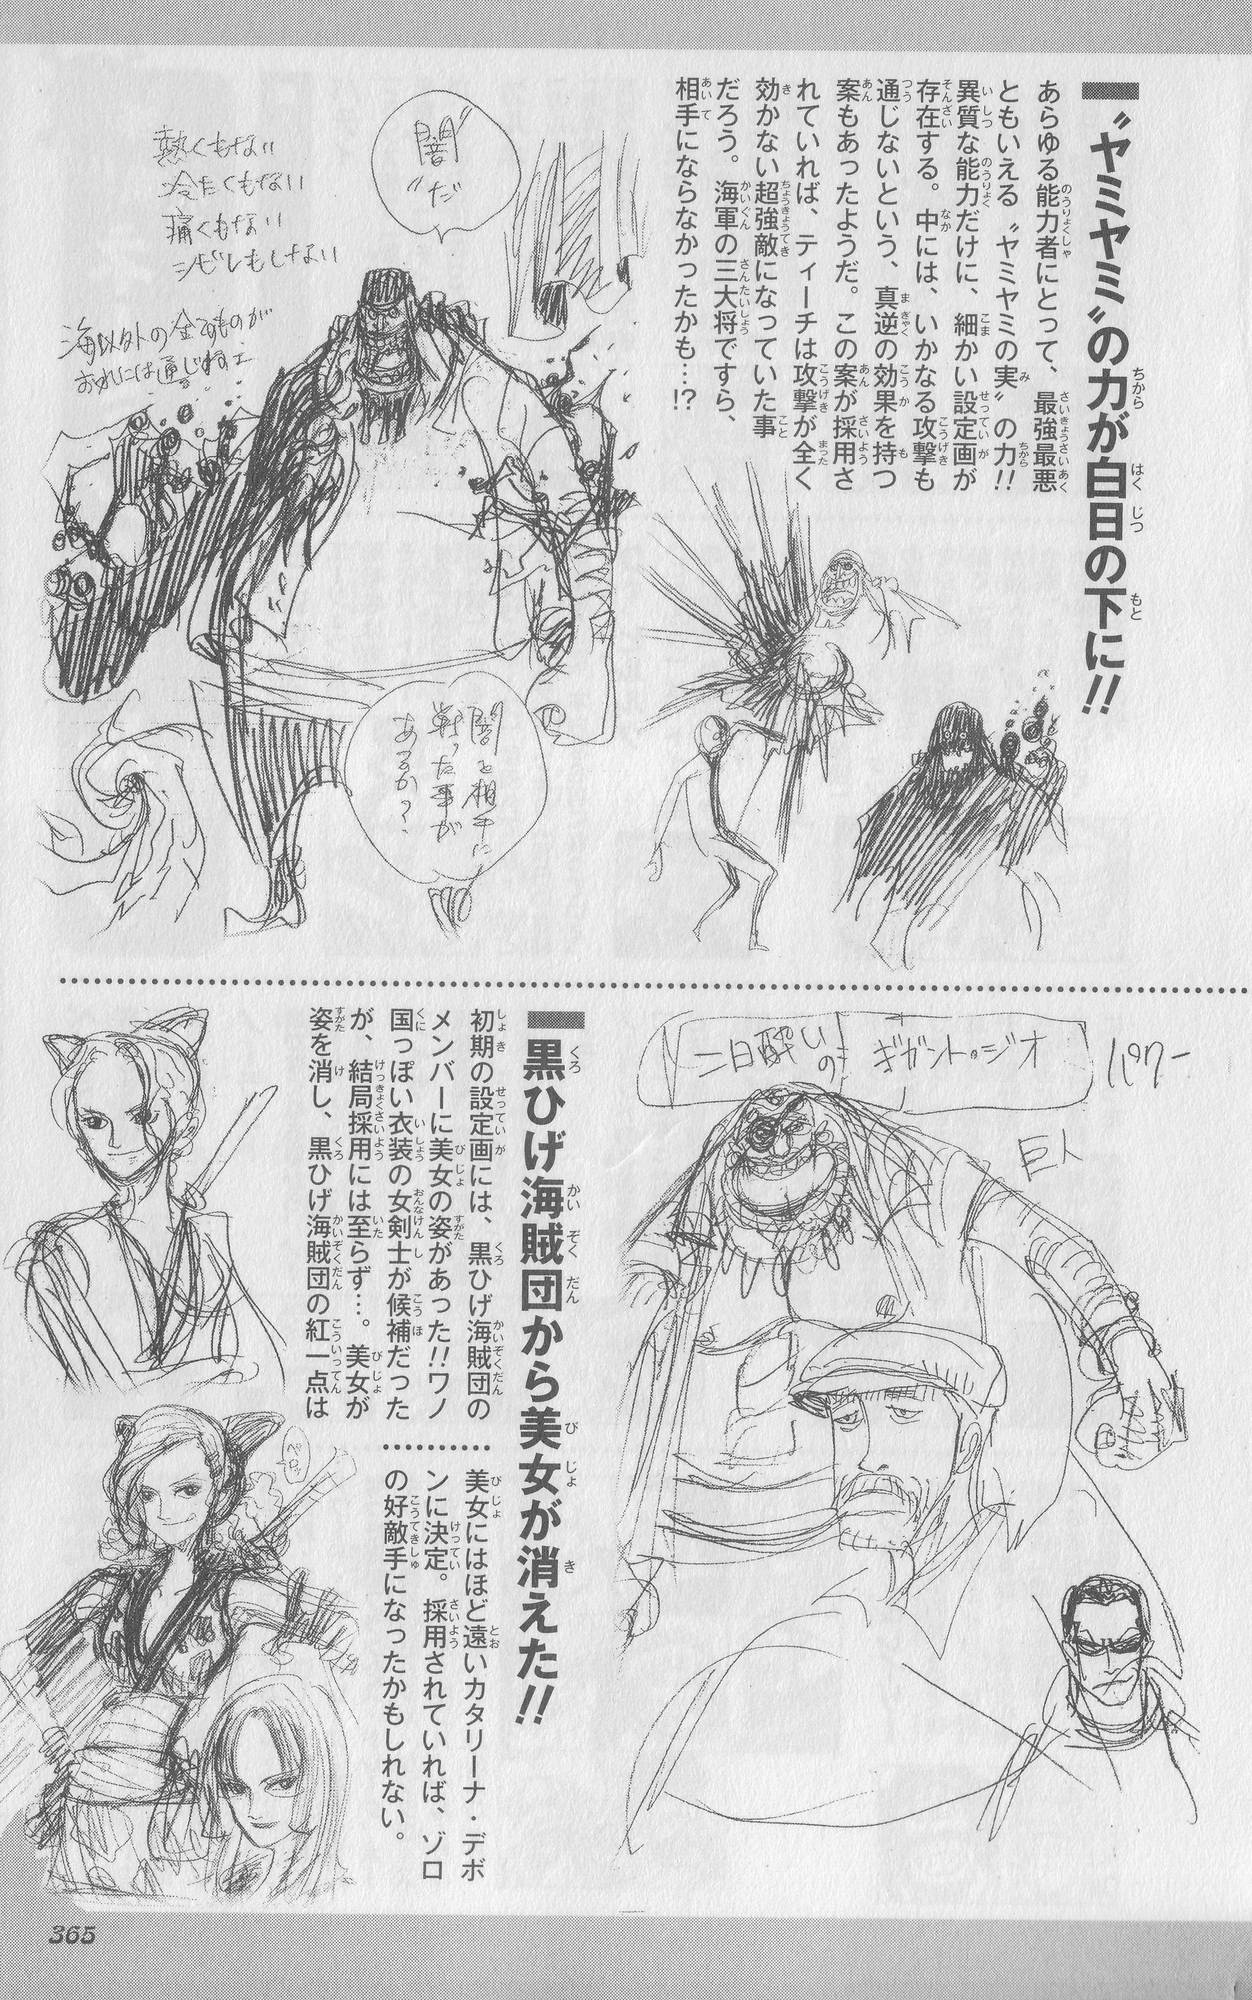 〝ヤミヤミ〟の力が白日の下に!!
あらゆる能力者にとって、最強最悪
ともいえる〝ヤミヤミの実〟の力!!
異質な能力だけに、細かい設定画が
存在する。中には、いかなる攻撃も
通じないという、真逆の効果を持つ
案もあったようだ。この案が採用さ
れていれば、ティーチは攻撃が全く
効かない超強敵になっていた事
だろう。海軍の三大将ですら、
相手にならなかったかも…!?
〝闇〟
だ
熱くもない
冷たくもない
痛くもない
シビレもしない
海以外の全てのものが
おれには通じねェ
闇を相手に
戦った事が
あるか?
パワー
二日酔いの ギガント・ジオ
巨人
黒ひげ海賊団から美女が消えた!!
初期の設定画には、黒ひげ海賊団の
メンバーに美女の姿があった!!ワノ
国っぽい衣装の女剣士が候補だった
が、結局採用には至らず…。美女が
姿を消し、黒ひげ海賊団の紅一点は
美女にはほど遠いカタリーナ・デボ
ンに決定。採用されていれば、ゾロ
の好敵手になったかもしれない。
365